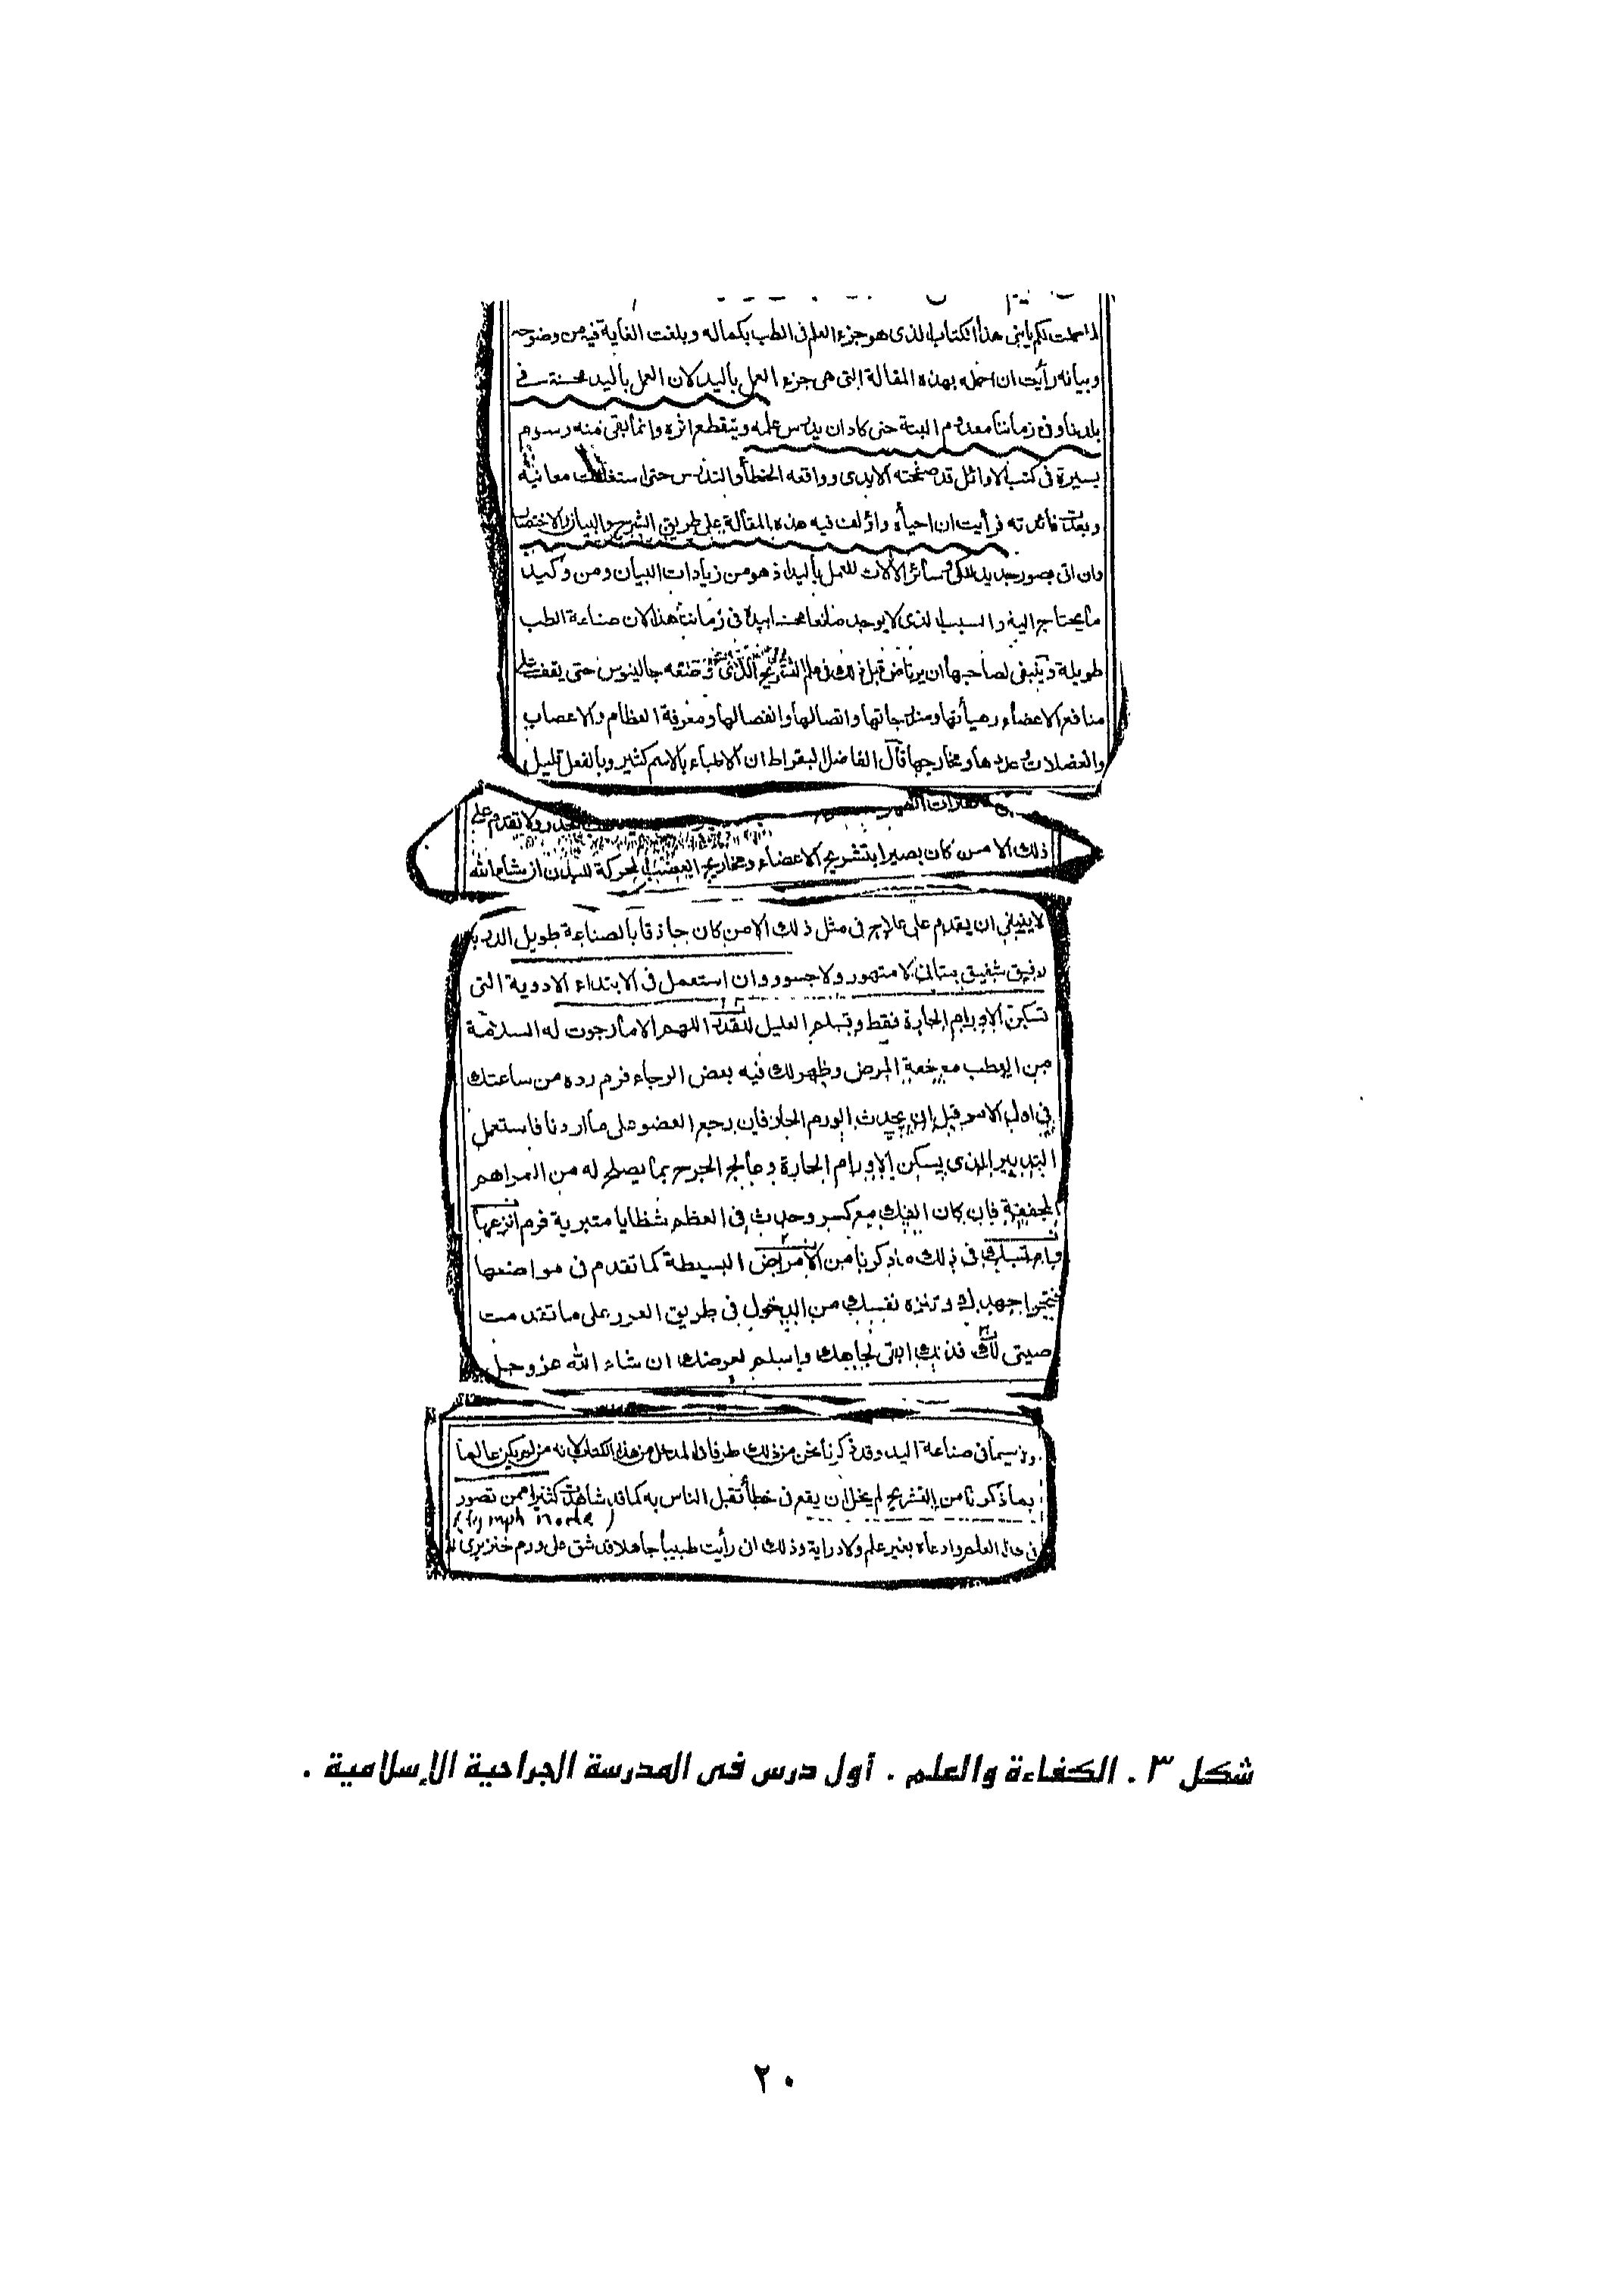 لما اكملت لكم يابنى هذا الكتاب الذى هو جزء العلم فى الطب بكماله وبلغت الغاية فيه من وضوحه
وبيانه رأيت ان اكمله بهذه المقالة التى هى جزء العمل باليد لان العمل باليد محسنة فى
بلدنا وفى زماننا معدوم البتة حتى كاد ان يدرس علمه وينقطع اثره وانما بقى منه رسوم
يسيرة فى كتب الاوائل قد صحفته الايدى وواقعه الخطأ والتدرس حتى استغلقت معانيه
وبعدت فائدته فرأيت ان احيأه واؤلف فيه هذه المقالة على طريق الشرح والبيان والاختصار
وان اتى بصور حديد للكى وسائر الآلات للعمل باليد اذ هو من زيادات البيان ومن وكيد
ما يحتاج اليه والسبب الذى لا يوجد صانعا محسنا بيده فى زماننا هذا لان صناعة الطب
طويلة وينبغى لصاحبها ان يرتاض قبل ذلك فى علم التشريح الذى وضعه جالينوس حتى يقف على
منافع الاعضاء وهيأتها ومزاجاتها واتصالها وانفصالها ومعرفة العظام والاعصاب
والعضلات وعددها ومخارجها قال الفاضل البقراط ان الاطباء بالاسم كثير وبالفعل قليل
فقارات الظهر ولا يقدم على
ذلك الا من كان بصيرا بتشريح الاعضاء ومخاريج العصب المحركة للبدن ان شاء الله
لا ينبغى ان يقدم على علاج فى مثل ذلك الا من كان حاذقا بالصناعة طويل الدربة
رفيق شفيق متانى لا متهور ولا جسور وان استعمل فى الابتداء الادوية التى
تسكن الاورام الحارة فقط وتسلم العليل للقدر اللهم الا ما رجوت له السلامة
من العطب مع خفة المرض وظهر لك فيه بعض الرجاء فرم رده من ساعتك
فى اول الامر قبل ان يحدث الورم الحار فان رجع العضو على ما اردنا فاستعمل
التدبير الذى يسكن الاورام الحارة وعالج الجرح بما يصلح له من المراهم
المجففة فان كان الفك مع كسر وحدث فى العظم شظايا متبرية فرم انزعها
وامتثل فى ذلك ما ذكرنا من الامراض البسيطة كما تقدم فى مواضعها
جهدك وتنزه نفسك من الدخول فى طريق الغرر على ما تقدمت
وصيتى لك فذلك ابقى لجاهك واسلم لعرضك ان شاء الله عز وجل
ولا سيما فى صناعة اليد وقد ذكرنا نحن من ذلك طرفا فى المدخل من هذا الكتاب لانه من لم يكن عالما
بما ذكرنا من التشريح لم يخل ان يقع فى خطأ تقبل الناس به كما قد شاهدت كثيرا ممن تصور
(lymph node)
فى هذا العلم وادعاه بغير علم ولا دراية وذلك ان رأيت طبيبا جاهلا قد شق على ورم خنزيرى
شكل ٣ . الكفاءة والعلم . أول درس فى المدرسة الجراحية الإسلامية .
٢٠